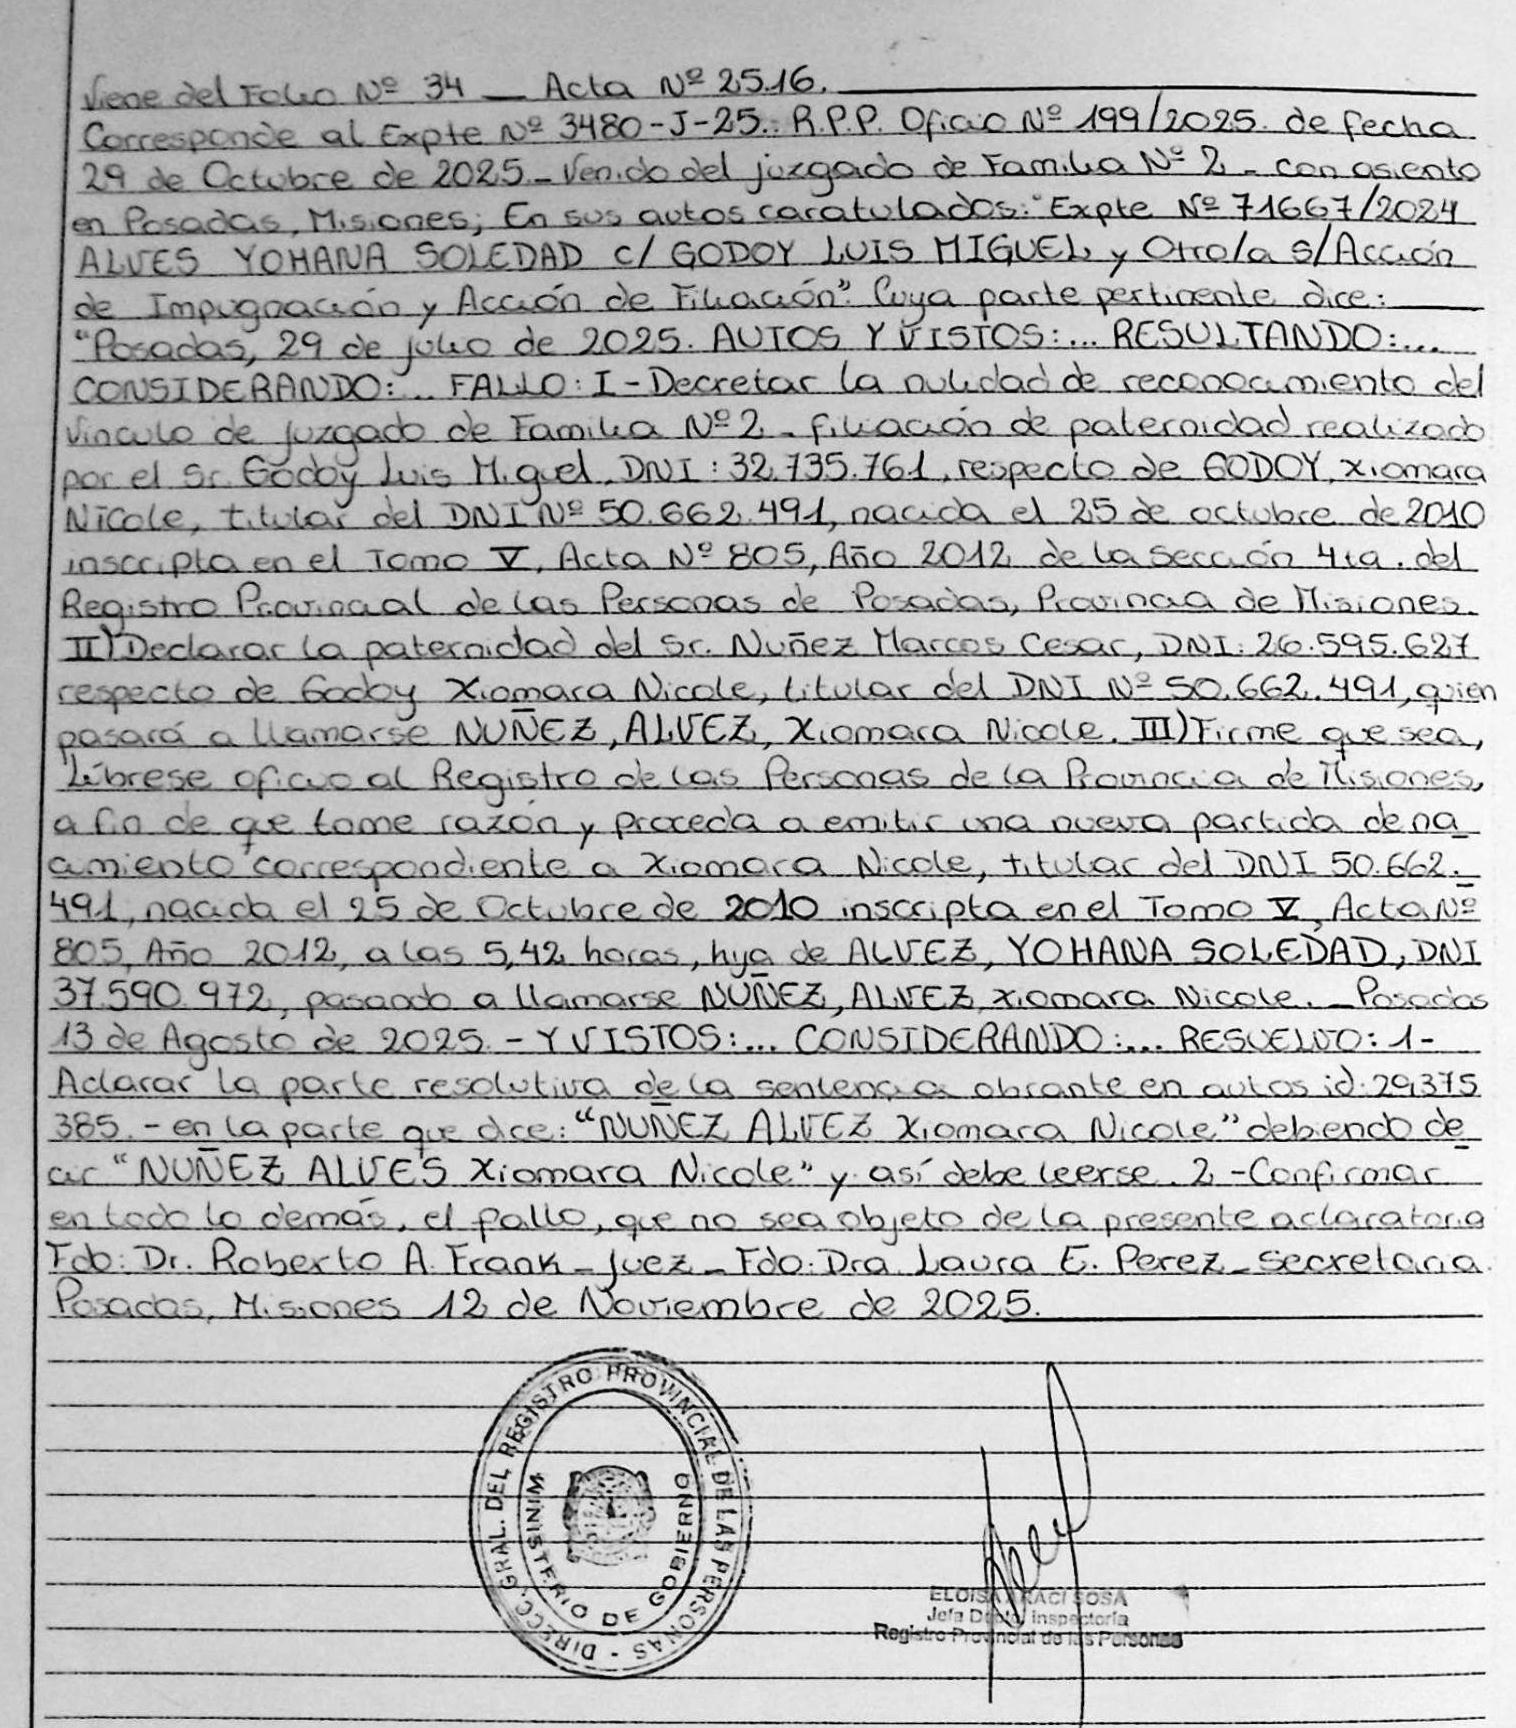 Viene del Folio Nº 34 _ Acta Nº 2516.
Corresponde al Expte Nº 3480-J-25.. R.P.P. Oficio Nº 199/2025. de fecha
29 de Octubre de 2025_ Venido del juzgado de Familia Nº 2 _ con asiento
en Posadas, Misiones; En sus autos caratulados: "Expte Nº 71667/2024
ALVES YOHANA SOLEDAD c/ GODOY LUIS MIGUEL y Otro/a S/Acción
de Impugnación y Acción de Filiación". Cuya parte pertinente dice:
"Posadas, 29 de julio de 2025. AUTOS Y VISTOS:... RESULTANDO:...
CONSIDERANDO:... FALLO: I - Decretar la nulidad de reconocimiento del
vinculo de juzgado de Familia Nº 2 _ filiación de paternidad realizado
por el Sr. Godoy Luis Miguel, DNI: 32.735.761, respecto de GODOY, Xiomara
Nicole, titular del DNI Nº 50.662.491, nacida el 25 de octubre de 2010
inscripta en el Tomo V, Acta Nº 805, Año 2012 de la Sección 4ta. del
Registro Provincial de las Personas de Posadas, Provincia de Misiones.
II) Declarar la paternidad del Sr. Nuñez Marcos Cesar, DNI: 26.595.627
respecto de Godoy Xiomara Nicole, titular del DNI Nº 50.662.491, quien
pasará a llamarse NUÑEZ, ALVEZ, Xiomara Nicole. III) Firme que sea,
Líbrese oficio al Registro de las Personas de la Provincia de Misiones,
a fin de que tome razón y proceda a emitir una nueva partida de na_
cimiento correspondiente a Xiomara Nicole, titular del DNI 50.662._
491, nacida el 25 de Octubre de 2010 inscripta en el Tomo V, Acta Nº
805, Año 2012, a las 5,42 horas, hija de ALVEZ, YOHANA SOLEDAD, DNI
37.590.972, pasando a llamarse NUÑEZ, ALVEZ, Xiomara Nicole. _ Posadas
13 de Agosto de 2025. - Y VISTOS:... CONSIDERANDO:... RESUELVO: 1-
Aclarar la parte resolutiva de la sentencia obrante en autos id: 29375
385. - en la parte que dice: "NUÑEZ ALVEZ Xiomara Nicole" debiendo de_
cir "NUÑEZ ALVES Xiomara Nicole" y así debe leerse. 2 - Confirmar
en todo lo demás, el fallo, que no sea objeto de la presente aclaratoria
Fdo: Dr. Roberto A. Frank _ Juez _ Fdo: Dra. Laura E. Perez _ Secretaria.
Posadas, Misiones 12 de Noviembre de 2025.
DIRECC. GRAL. DEL REGISTRO PROVINCIAL DE LAS PERSONAS -
MINISTERIO DE GOBIERNO
ELOISA ARACI SOSA
Jefa Dpto Inspectoría
Registro Provincial de las Personas